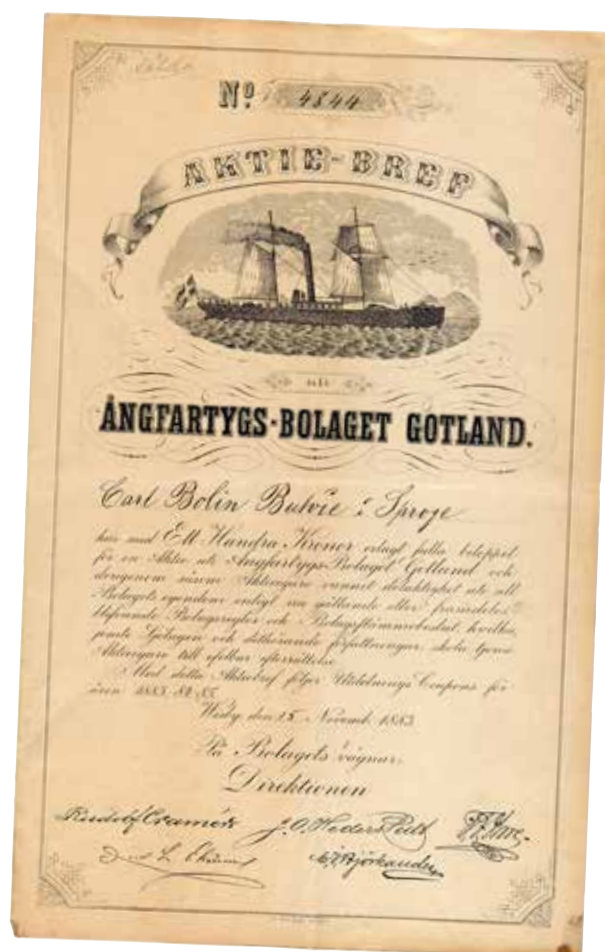 Nº 4844
AKTIE-BREF
uti
ÅNGFARTYGS-BOLAGET GOTLAND.
Carl Bolin Butvie i Sproge
har med Ett Hundra Kronor erlagt fulla beloppet
för en Aktie uti Ångfartygs-Bolaget Gotland och
derigenom såsom Aktieegare vunnit delaktighet uti all
Bolagets egendom enligt nu gällande eller framdeles
blifvande Bolagsregler och Bolagsstämmobeslut, hvilka,
jemte Sjölagen och dithörande författningar, skola tjena
Aktieegare till efterrättelse.
Med detta Aktiebref följer Utdelnings Coupons för
åren 1883.84.85.
Wisby den 15 Novemb. 1883.
På Bolagets vägnar.
Direktionen
Rudolf Cramér J. O. Wederstedt
Björkander